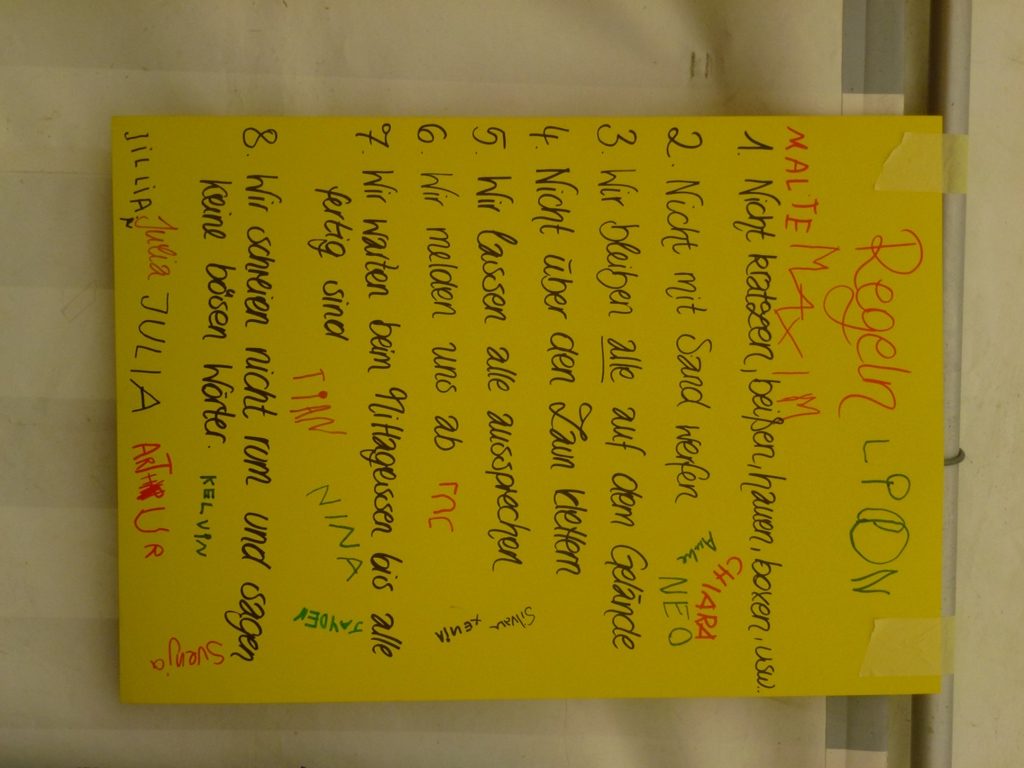 Regeln
LPON
MALTE MAXIM
1. Nicht kratzen, beißen, hauen, boxen, usw.
CHIARA
2. Nicht mit Sand werfen
NEO
3. Wir bleiben alle auf dem Gelände
4. Nicht über den Zaun klettern
5. Wir lassen alle aussprechen
Silvan XENIA
6. Wir melden uns ab
7. Wir warten beim Mittagessen bis alle
fertig sind
TIAN NINA JAYDEN
8. Wir schreien nicht rum und sagen
keine bösen Wörter. KELVIN
JILLIAN Julia JULIA ARTHUR Svenja